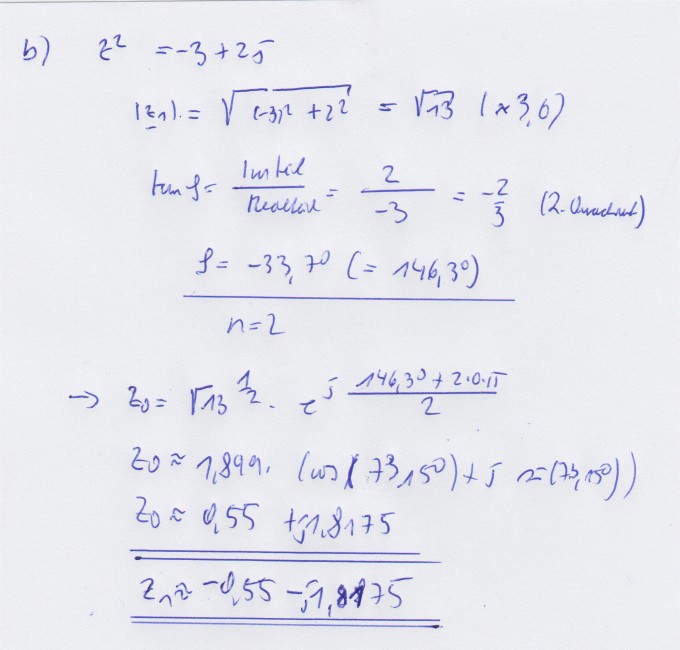 b) z² = -3 + 2j
|z₁| = √((-3)² + 2²) = √13 (≈ 3,6)
tan φ = Imteil / Realteil = 2 / -3 = -2/3 (2. Quadrant)
φ = -33,7° (= 146,3°)
n = 2
→ z₀ = √13^(1/2) · e^(j (146,3° + 2·0·π) / 2)
z₀ ≈ 1,899 · (cos(73,15°) + j sin(73,15°))
z₀ ≈ 0,55 + j1,8175
z₁ ≈ -0,55 - j1,8175